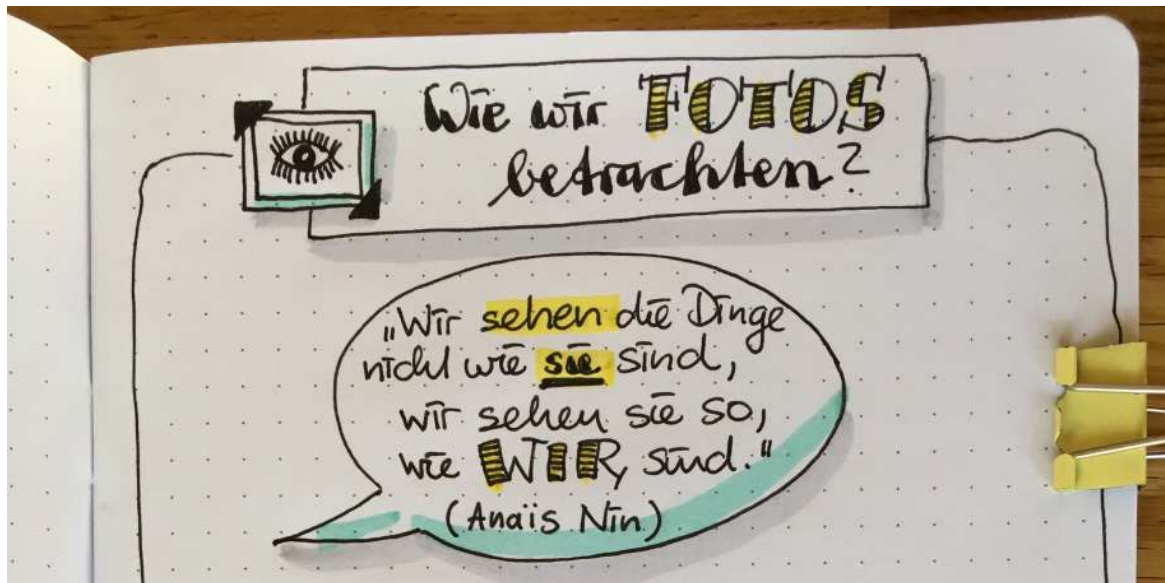 Wie wir FOTOS
betrachten?
„Wir sehen die Dinge
nicht wie sie sind,
wir sehen sie so,
wie WIR sind."
(Anaïs Nin)